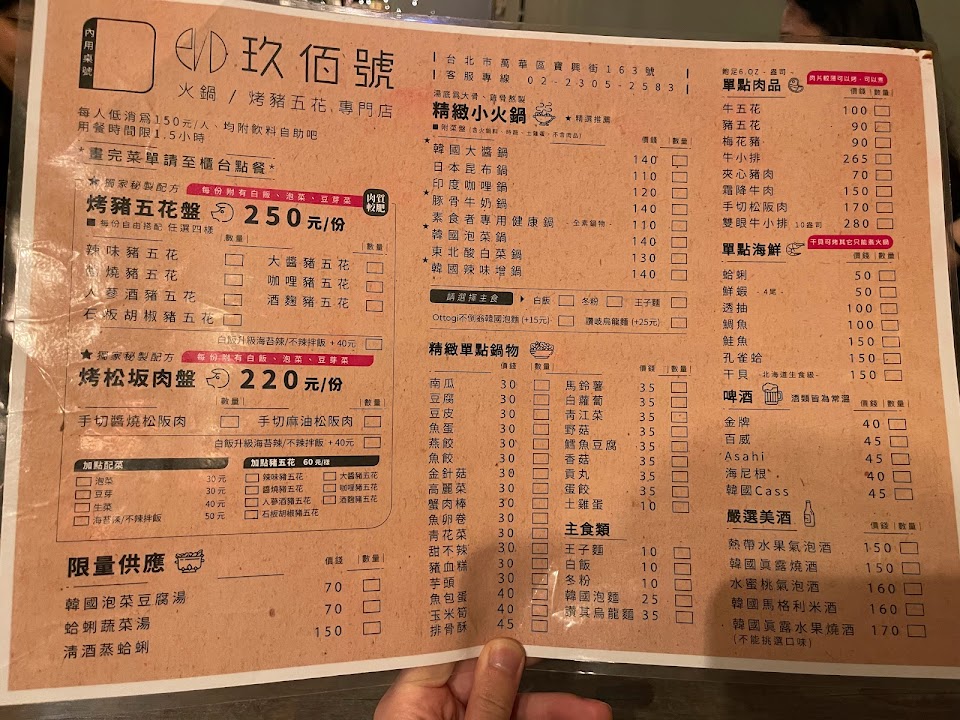 內用桌號
玖佰號
火鍋 / 烤豬五花 專門店
每人低消為150元/人、均附飲料自助吧
用餐時間限1.5小時
*畫完菜單請至櫃台點餐*
★ 獨家秘製配方 每份附有白飯、泡菜、豆芽菜
肉質較肥
烤豬五花盤 250元/份
■ 每份自由搭配 任選四樣
數量 數量
辣味豬五花 大醬豬五花
燒豬五花 咖哩豬五花
人蔘酒豬五花 酒麴豬五花
石板胡椒豬五花
白飯升級海苔辣/不辣拌飯 +40元
★ 獨家秘製配方 每份附有白飯、泡菜、豆芽菜
烤松坂肉盤 220元/份
數量 數量
手切醬燒松阪肉 手切麻油松阪肉
白飯升級海苔辣/不辣拌飯 +40元
加點配菜
泡菜 30元
豆芽 30元
生菜 40元
海苔辣/不辣拌飯 50元
加點豬五花 60元/樣
辣味豬五花 大醬豬五花
醬燒豬五花 咖哩豬五花
人蔘酒豬五花 酒麴豬五花
石板胡椒豬五花
限量供應 價錢 數量
韓國泡菜豆腐湯 70
蛤蜊蔬菜湯 70
清酒蒸蛤蜊 150
台北市萬華區寶興街163號
客服專線 02-2305-2583
湯底為大骨、雞骨熬製
精緻小火鍋 ★精選推薦
■ 附菜盤(含火鍋料、時蔬、土雞蛋、不含肉品) 價錢 數量
★韓國大醬鍋 140
日本昆布鍋 110
印度咖哩鍋 120
★豚骨牛奶鍋 140
素食者專用健康鍋 -全素鍋物- 110
★韓國泡菜鍋 140
東北酸白菜鍋 130
★韓國辣味增鍋 140
請選擇主食 白飯 冬粉 王子麵
Ottogi不倒翁韓國泡麵 (+15元) 讚岐烏龍麵 (+25元)
精緻單點鍋物
價錢 數量
南瓜 30
豆腐 30
豆皮 30
魚蛋 30
燕餃 30
魚餃 30
金針菇 30
高麗菜 30
蟹肉棒 30
魚卵卷 30
青花菜 30
甜不辣 30
豬血糕 30
芋頭 30
魚包蛋 40
玉米筍 40
排骨酥 45
價錢 數量
馬鈴薯 35
白蘿蔔 35
青江菜 35
野菇 35
鱈魚豆腐 35
香菇 35
貢丸 35
蛋餃 35
土雞蛋 10
主食類
王子麵 10
白飯 10
冬粉 10
韓國泡麵 25
讚其烏龍麵 35
飽足6.OZ-盎司- 肉片較薄可以烤、可以煮
單點肉品 價錢 數量
牛五花 100
豬五花 90
梅花豬 90
牛小排 265
夾心豬肉 70
霜降牛肉 150
手切松阪肉 170
雙眼牛小排 10盎司 280
干貝可烤其它只能煮火鍋
單點海鮮 價錢 數量
蛤蜊 50
鮮蝦 -4尾- 50
透抽 100
鯛魚 100
鮭魚 150
孔雀蛤 150
干貝 -北海道生食級- 150
啤酒 酒類皆為常溫 價錢 數量
金牌 40
百威 45
Asahi 45
海尼根 40
韓國Cass 45
嚴選美酒 價錢 數量
熱帶水果氣泡酒 150
韓國真露燒酒 150
水蜜桃氣泡酒 160
韓國馬格利米酒 160
韓國真露水果燒酒 170
(不能挑選口味)